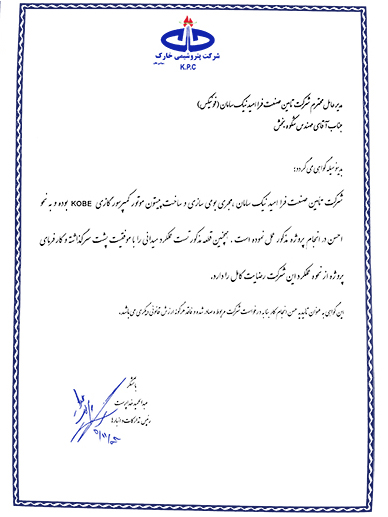 شرکت پتروشیمی خارک
K.P.C
مدیرعامل محترم شرکت تامین صنعت فرا امید نیک سامان (فونیکس)
جناب آقای مهندس شکوه بخش
بدینوسیله گواهی می گردد؛
شرکت تامین صنعت فرا امید نیک سامان ، مجری بومی سازی و ساخت پیستون موتور کمپرسور گازی KOBE بوده و به نحو
احسن در انجام پروژه مذکور عمل نموده است . همچنین قطعه مذکور تست عملکرد میدانی را با موفقیت پشت سر گذاشته و کارفرمای
پروژه از نحوه عملکرد این شرکت رضایت کامل را دارد.
این گواهی به عنوان تاییدیه حسن انجام کار بنا به درخواست شرکت مربوطه صادر شده و فاقد هرگونه ارزش قانونی دیگری می باشد.
با تشکر
عبدالحمید خداپرست
رئیس تدارکات و انبارها